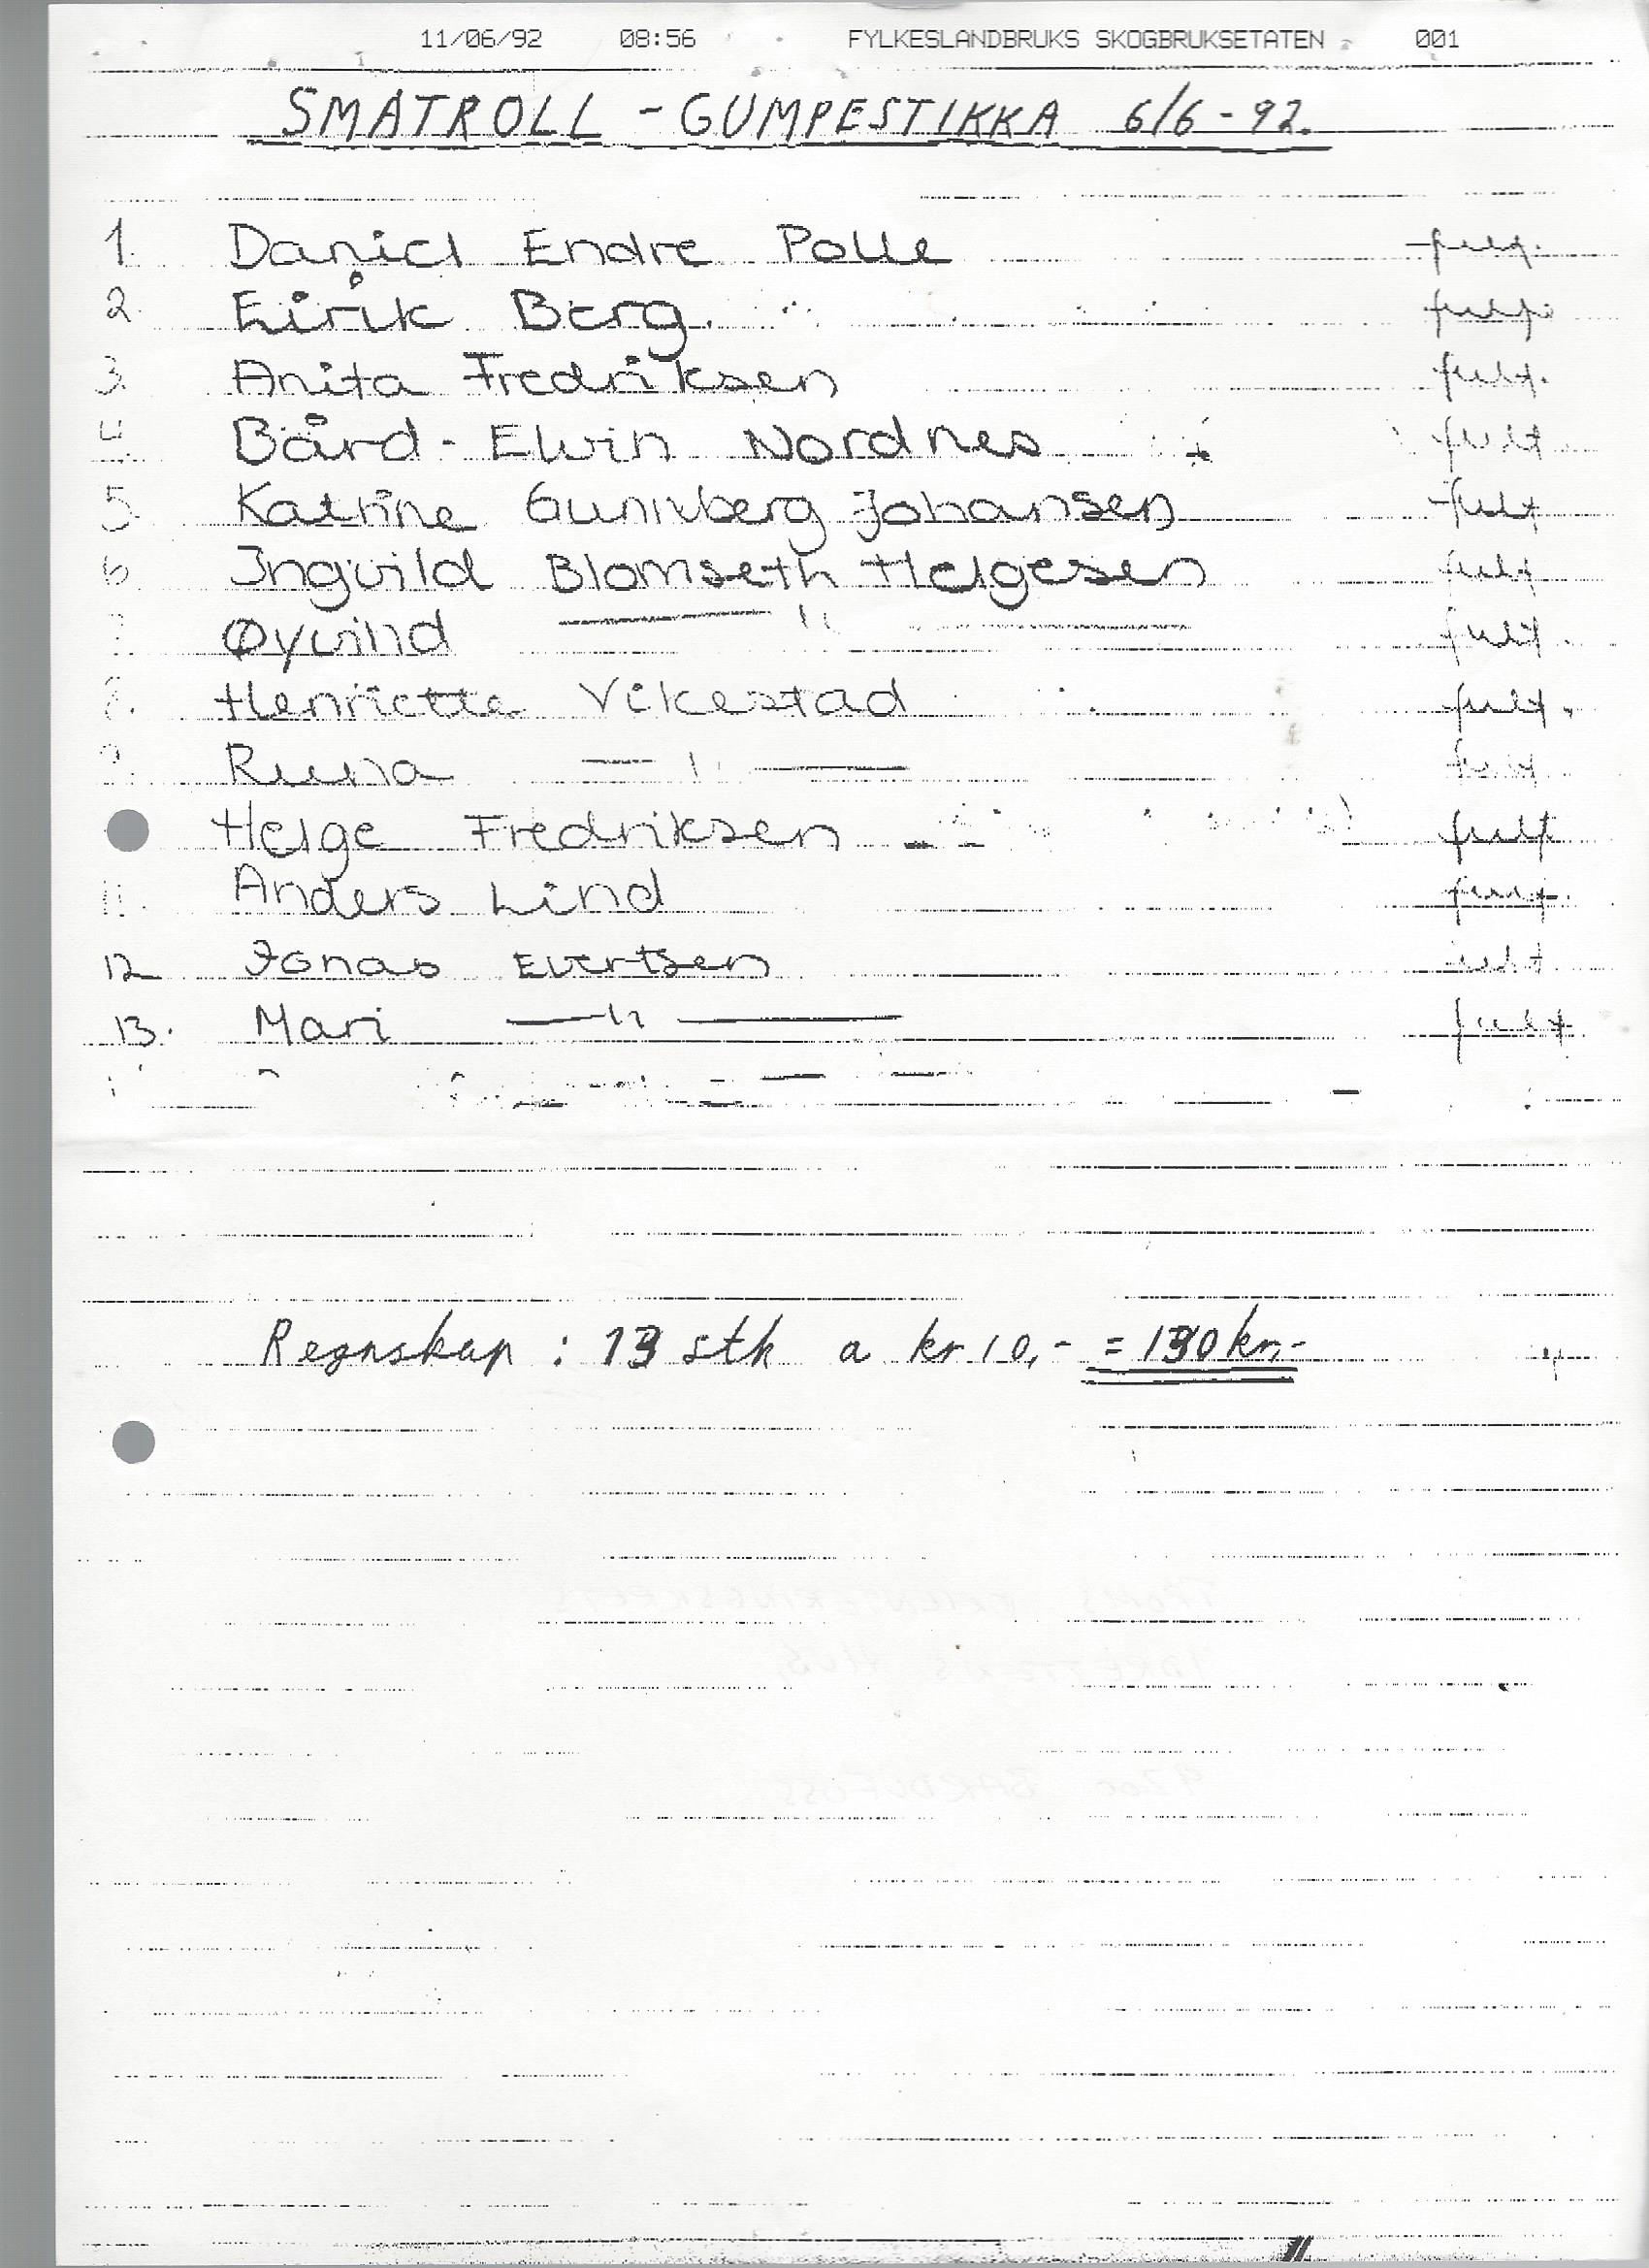 11/06/92 08:56 FYLKESLANDBRUKS SKOGBRUKSETATEN 001
SMÅTROLL - GUMPESTIKKA 6/6 - 92.
1. Daniel Endre Polle fullf.
2. Eirik Berg. fullf.
3. Anita Fredriksen fullf.
4. Bård - Elvin Nordnes fullf
5. Katrine Gunnberg Johansen fullf
6. Ingvild Blomseth Helgesen fullf
Øyvind — " — fullf.
Henriette Vikestad fullf.
Runa — " —
Helge Fredriksen fullf
11. Anders Lind fullf.
12 Jonas Evertsen
13. Mari — " — fullf
Regnskap : 13 stk a kr 10,- = 130 kr,-
9200 BARDUFOSS